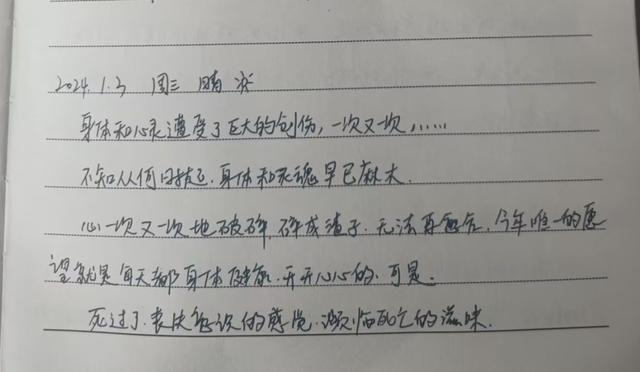 2024.1.3 周三 晴
身体和心灵遭受了巨大的创伤，一次又一次……
不知从何时起.身体和灵魂早已麻木.
心一次又一次地破碎,碎成渣子.无法再愈合.今年唯一的愿
望就是每天都身体健康.开开心心的.可是.
死过了.丧失意识的感觉.濒临死亡的滋味.